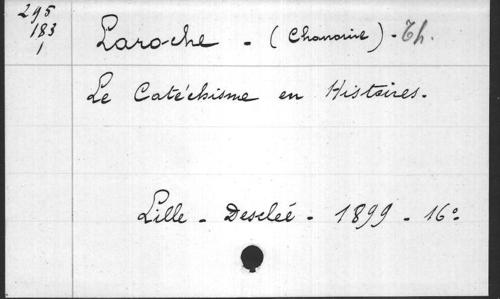 295
183
1
Laroche - (Chanoine) - Th.
Le Catéchisme en Histoires.
Lille - Descleé - 1899 - 16°